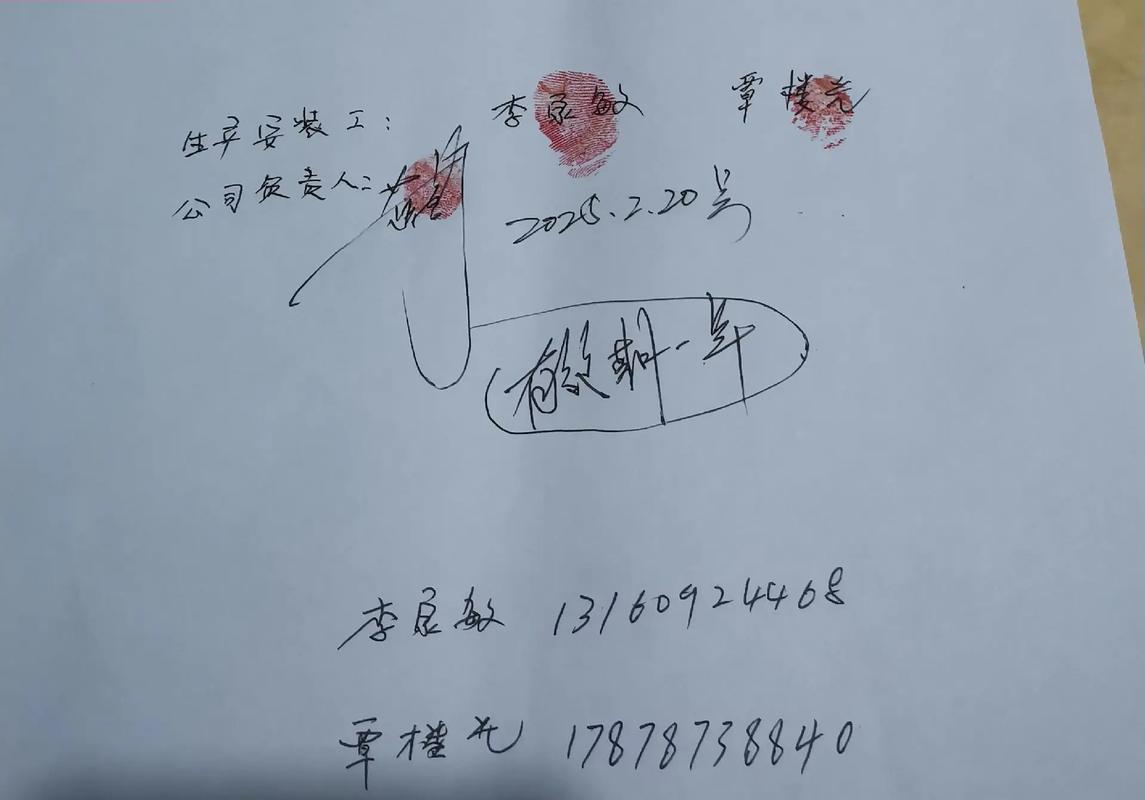 生产安装工: 李泉敏 覃楼尧
公司负责人:
2025.2.20号
有效期一年
李泉敏 13160924468
覃楼尧 17878738840